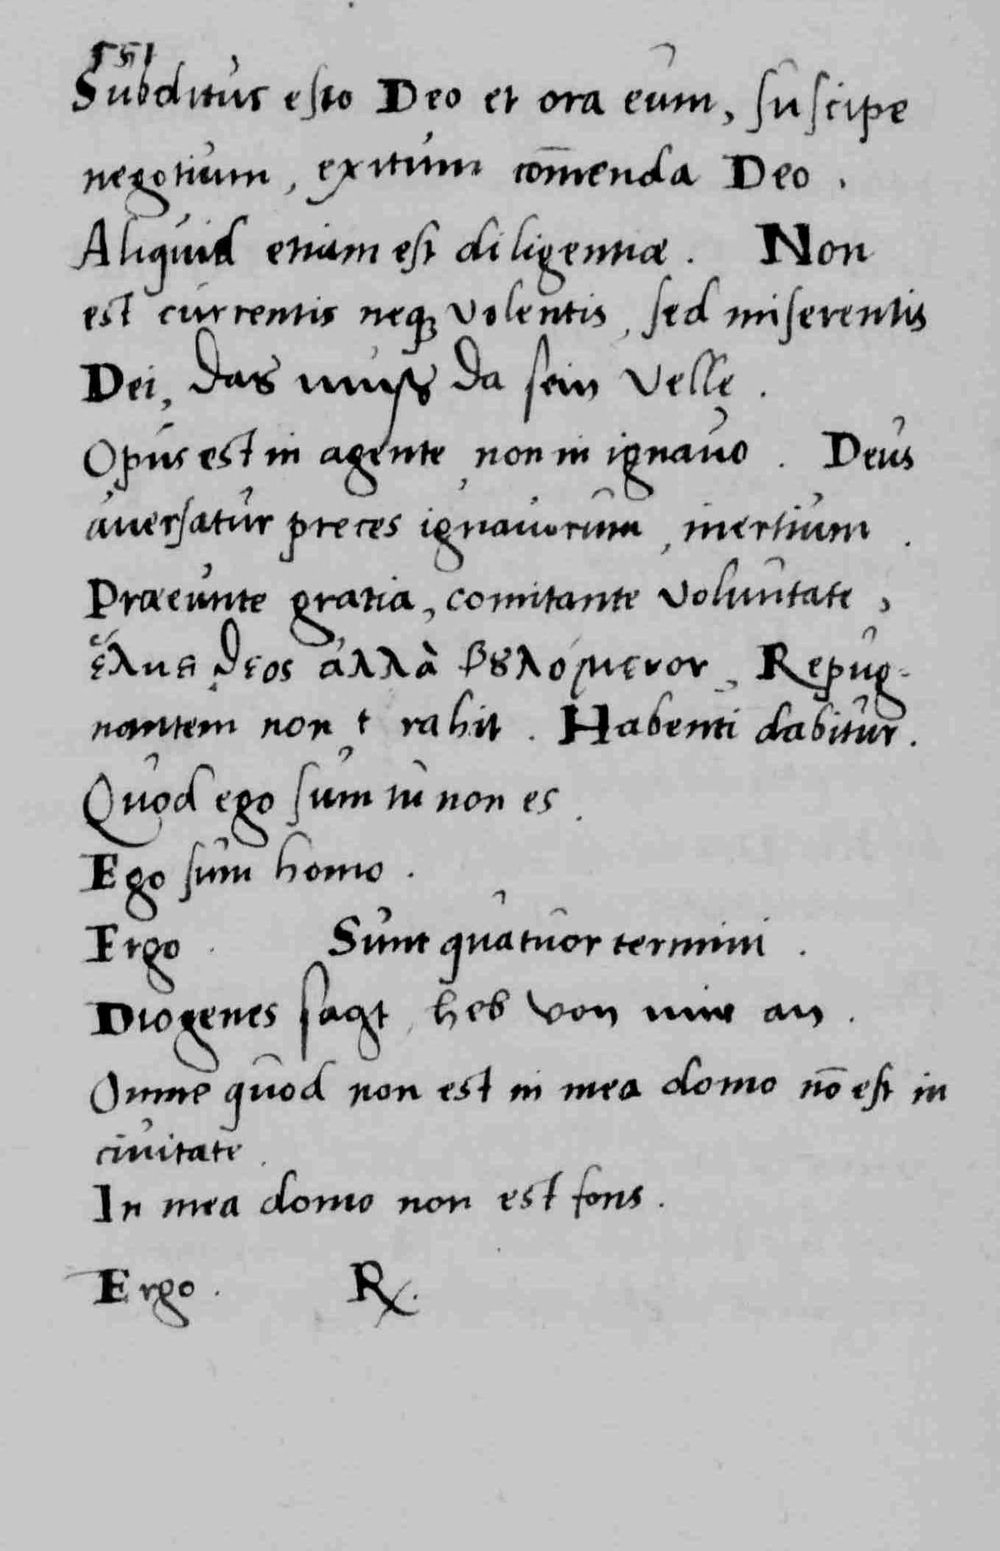 151
Subditus esto Deo et ora eum, suscipe
negotium, exitum com̄enda Deo.
Aliquid etiam est diligentiæ. Non
est currentis neq; volentis, sed miserentis
Dei, das muß da sein velle.
Opus est in agente, non in ignavo. Deus
aversatur preces ignavorum, inertium.
Præeunte gratia, comitante voluntate,
ἕλκει θεος ἀλλὰ βȣλόμενον, Repug-
nantem non trahit. Habenti dabitur.
Quod ego sum tu non es.
Ego sum homo.
Ergo. Sunt quatuor termini.
Diogenes sagt, heb von mir an.
Omne quod non est in mea domo nō est in
civitate.
In mea domo non est fons.
Ergo. ℞.